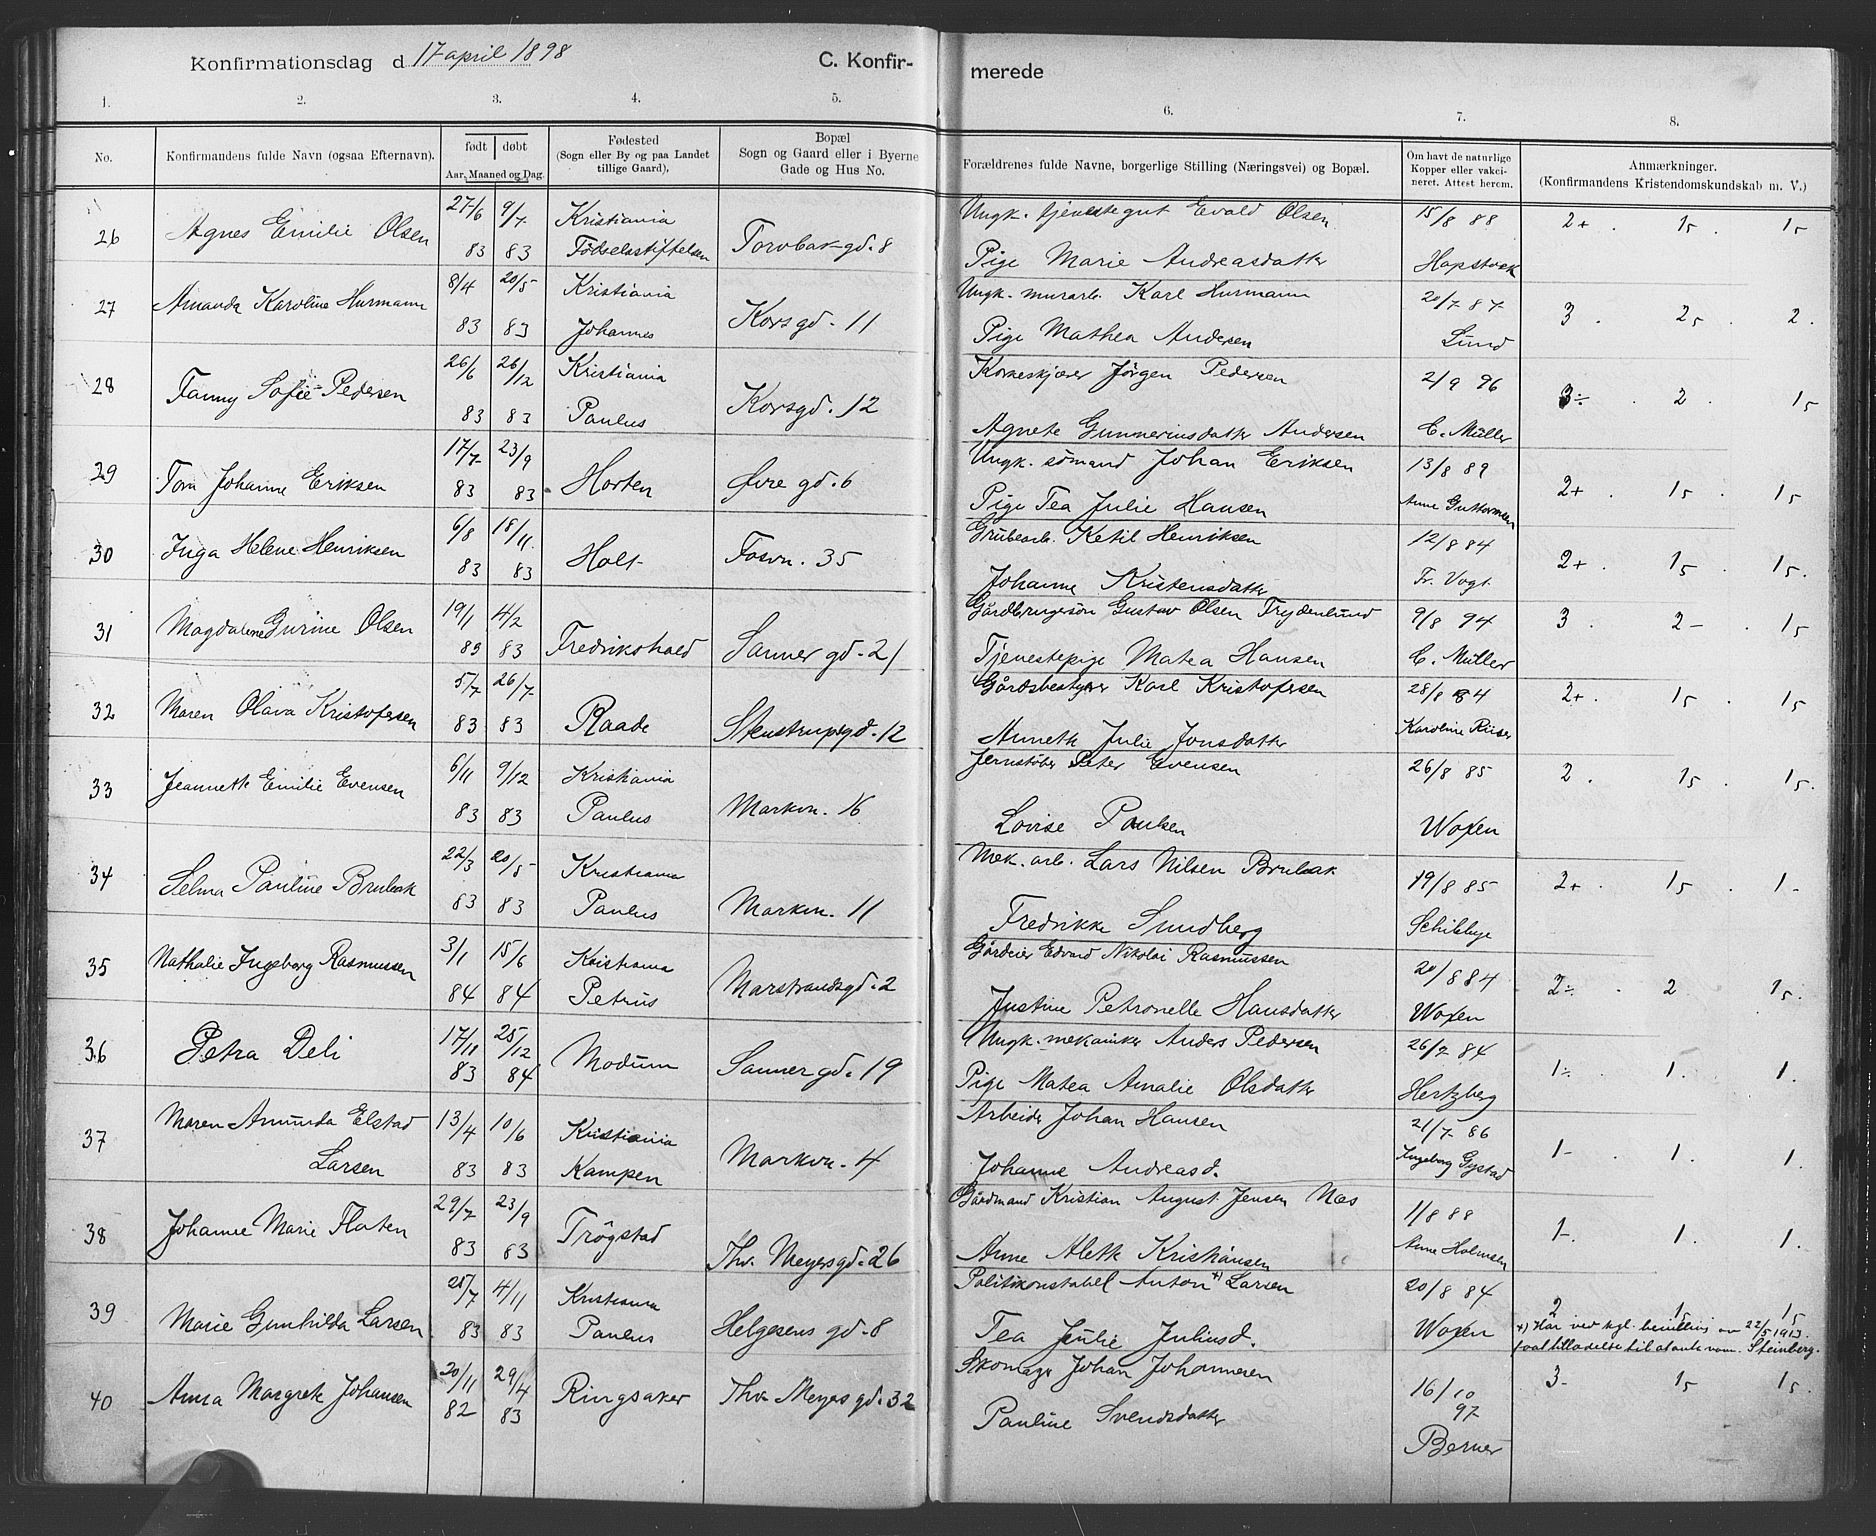 Konfirmationsdag d 17 april 1898 C. Konfirmerede
1. 2. 3. 4. 5. 6. 7. 8.
No. Konfirmandens fulde Navn (ogsaa Efternavn). født døbt Aar, Maaned og Dag. Fødested (Sogn eller By og paa Landet tillige Gaard). Bopæl Sogn og Gaard eller i Byerne Gade og Hus No. Forældrenes fulde Navne, borgerlige Stilling (Næringsvei) og Bopæl. Om havt de naturlige Kopper eller vakcineret. Attest herom. Anmærkninger. (Konfirmandens Kristendomskundskab m. V.)
26 Agnes Emilie Olsen 27/6 83 9/7 83 Kristiania Fødselsstiftelsen Torvbakgd. 8 Ungk. tjenestegut Evald Olsen 15/8 88 2+ . 15 . 15
Pige Marie Andreasdatter Hapstock
27 Amanda Karoline Hurmann 8/4 83 20/5 83 Kristiania Johannes Korsgd. 11 Ungk. murarb. Karl Hurmann 20/7 87 3 . 25 . 2.
Pige Mathea Andersen Lund
28 Fanny Sofie Pedersen 26/6 83 26/12 83 Kristiania Paulus Korsgd. 12 Korkeskjærer Jörgen Pedersen 2/9 96 3÷ . 2 . 15
Agnete Gunneriusdatter Andersen C. Müller
29 Tora Johanne Eriksen 17/7 83 23/9 83 Horten Øvre gd. 6 Ungk. sömand Johan Eriksen 13/8 89 2+ . 15 . 15
Pige Tea Julie Hansen Anne Guttormsen
30 Inga Helene Henriksen 6/8 83 18/11 83 Holt Fosvn. 35 Grubearb. Ketil Henriksen 12/8 84 2+ . 15 . 15.
Johanne Kristensdatter Fr. Vogt
31 Magdalene Gurine Olsen 19/1 83 4/2 83 Fredrikshald Sannergd. 21 Gårdbrugersön Gustav Olsen Frydenlund 9/8 94 3 . 2- . 15
Tjenestepige Matea Hansen C. Müller
32 Maren Olava Kristofersen 5/7 83 26/7 83 Raade Stenstrupsgd. 12 Gårdsbestyrer Karl Kristofersen 28/8 84 2+ . 15 . 15
Annette Julie Jonsdatter Karoline Riiser
33 Jeannette Emilie Evensen 6/11 83 9/12 83 Kristiania Paulus Markvn. 16 Jernstöber Peter Evensen 26/8 85 2 . 15 . 15.
Lovise Paulsen Woxen
34 Selma Pauline Brubak 22/3 83 20/5 83 Kristiania Paulus Markvn. 11 Mek. arb. Lars Nilsen Brubak 19/8 85 2+ . 15 . 1-
Fredrikke Sundberg Schibbye
35 Nathalie Ingeborg Rasmussen 3/1 84 15/6 84 Kristiania Petrus Marstrandsgd. 2 Gårdeier Edvard Nikolai Rasmussen 20/8 84 2÷ . 2 15.
Justine Petronelle Hansdatter Woxen
36 Petra Deli 17/11 83 25/12 84 Modum Sannergd. 19 Ungk. mekaniker Anders Pedersen 26/7 84 1÷ 1. 1.
Pige Matea Amalie Olsdatter Hertzberg
37 Maren Amunda Elstad Larsen 13/4 83 10/6 83 Kristiania Kampen Markvn. 4 Arbeider Johan Hansen 21/7 86 1- . 1. 1.
Johanne Andreasd. Ingeborg Gystad
38 Johanne Marie Flaten 29/7 83 23/9 83 Trögstad Thv. Meyersgd. 26 Gårdmand Kristian August Jensen Næs 1/8 88 1- . 1. 1.
Anne Alette Kristiansen Anne Holmsen
39 Marie Gunhilda Larsen 25/7 83 4/11 83 Kristiania Paulus Helgesens gd. 8 Politikonstabel Anton +) Larsen 20/8 84 2 15 15
Tea Julie Juliusd. Woxen +) Har ved kgl. bevilling av 22/5 1913.
faat tilladelse til at anta navn. Steinberg.
40 Anna Margrete Johansen 20/11 82 29/4 83 Ringsaker Thv. Meyersgd. 32 Skomager Johan Johannesen 16/10 97 3- 15 15.
Pauline Svendsdatter Berner